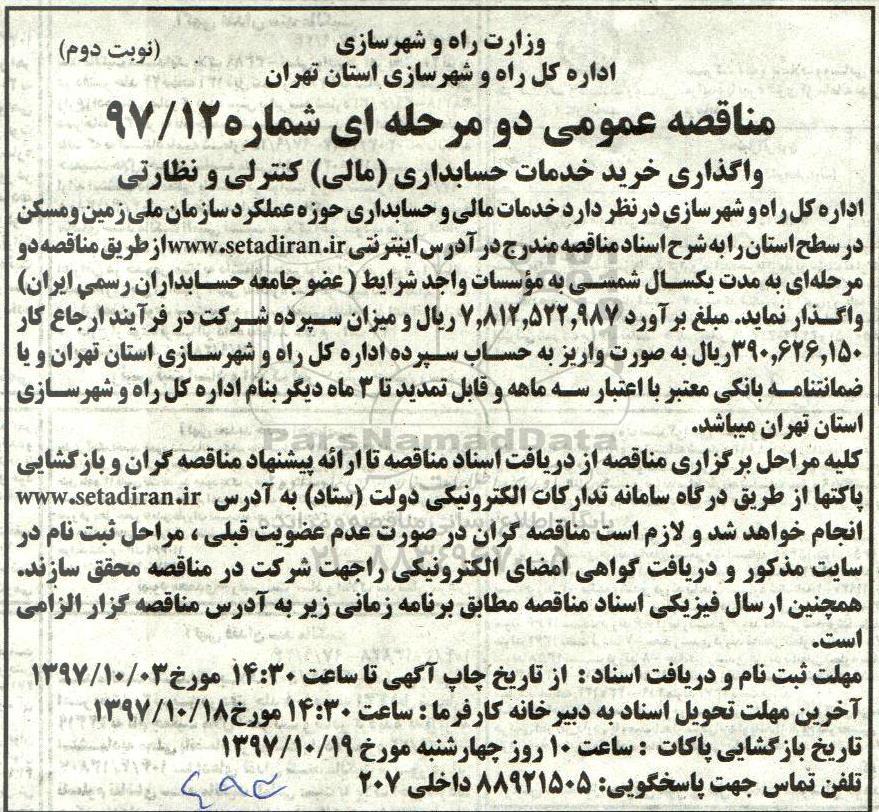 وزارت راه و شهرسازی
(نوبت دوم)
اداره کل راه و شهرسازی استان تهران
مناقصه عمومی دو مرحله ای شماره ۹۷/۱۲
واگذاری خرید خدمات حسابداری (مالی) کنترلی و نظارتی
اداره کل راه و شهرسازی در نظر دارد خدمات مالی و حسابداری حوزه عملکرد سازمان ملی زمین و مسکن
در سطح استان را به شرح اسناد مناقصه مندرج در آدرس اینترنتی www.setadiran.ir از طریق مناقصه دو
مرحله‌ای به مدت یکسال شمسی به مؤسسات واجد شرایط ( عضو جامعه حسابداران رسمی ایران)
واگذار نماید. مبلغ برآورد ۷,۸۱۲,۵۲۲,۹۸۷ ریال و میزان سپرده شرکت در فرآیند ارجاع کار
۳۹۰,۶۲۶,۱۵۰ریال به صورت واریز به حساب سپرده اداره کل راه و شهرسازی استان تهران و یا
ضمانتنامه بانکی معتبر با اعتبار سه ماهه و قابل تمدید تا ۳ ماه دیگر بنام اداره کل راه و شهرسازی
استان تهران میباشد.
کلیه مراحل برگزاری مناقصه از دریافت اسناد مناقصه تا ارائه پیشنهاد مناقصه گران و بازگشایی
پاکتها از طریق درگاه سامانه تدارکات الکترونیکی دولت (ستاد) به آدرس www.setadiran.ir
انجام خواهد شد و لازم است مناقصه گران در صورت عدم عضویت قبلی ، مراحل ثبت نام در
سایت مذکور و دریافت گواهی امضای الکترونیکی راجهت شرکت در مناقصه محقق سازند.
همچنین ارسال فیزیکی اسناد مناقصه مطابق برنامه زمانی زیر به آدرس مناقصه گزار الزامی
است.
مهلت ثبت نام و دریافت اسناد : از تاریخ چاپ آگهی تا ساعت ۱۴:۳۰ مورخ ۱۳۹۷/۱۰/۰۳
آخرین مهلت تحویل اسناد به دبیرخانه کارفرما : ساعت ۱۴:۳۰ مورخ ۱۳۹۷/۱۰/۱۸
تاریخ بازگشایی پاکات : ساعت ۱۰ روز چهارشنبه مورخ ۱۳۹۷/۱۰/۱۹
تلفن تماس جهت پاسخگویی: ۸۸۹۲۱۵۰۵ داخلی ۲۰۷
ParsNamadData